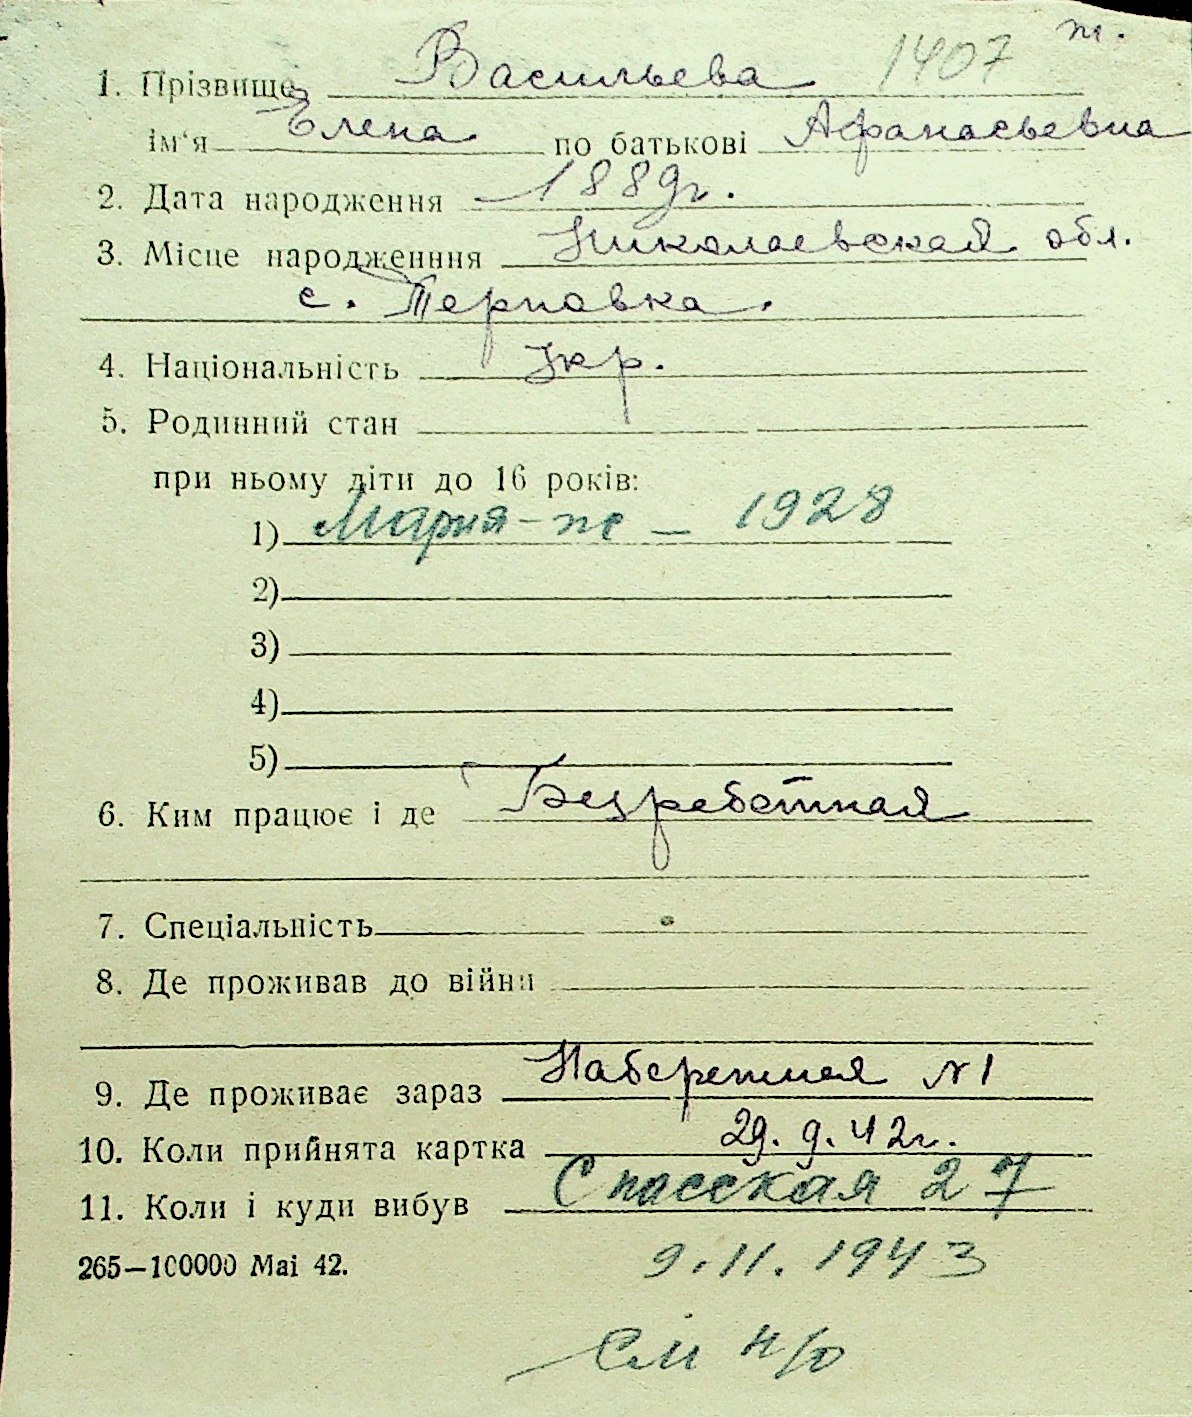 1407 ж.
1. Прізвище Васильева
ім'я Елена по батькові Афанасьевна
2. Дата народження 1889г.
3. Місце народженння Николаевская обл.
с. Терновка.
4. Національність Укр.
5. Родинний стан
при ньому діти до 16 років:
1) Мария - ж - 1928
2)
3)
4)
5)
6. Ким працює і де Безработная
7. Спеціальність
8. Де проживав до війни
9. Де проживає зараз Набережная №1
10. Коли прийнята картка 29.9.42г.
11. Коли і куди вибув Спасская 27
265—100000 Mai 42.
9.11.1943
См н/о